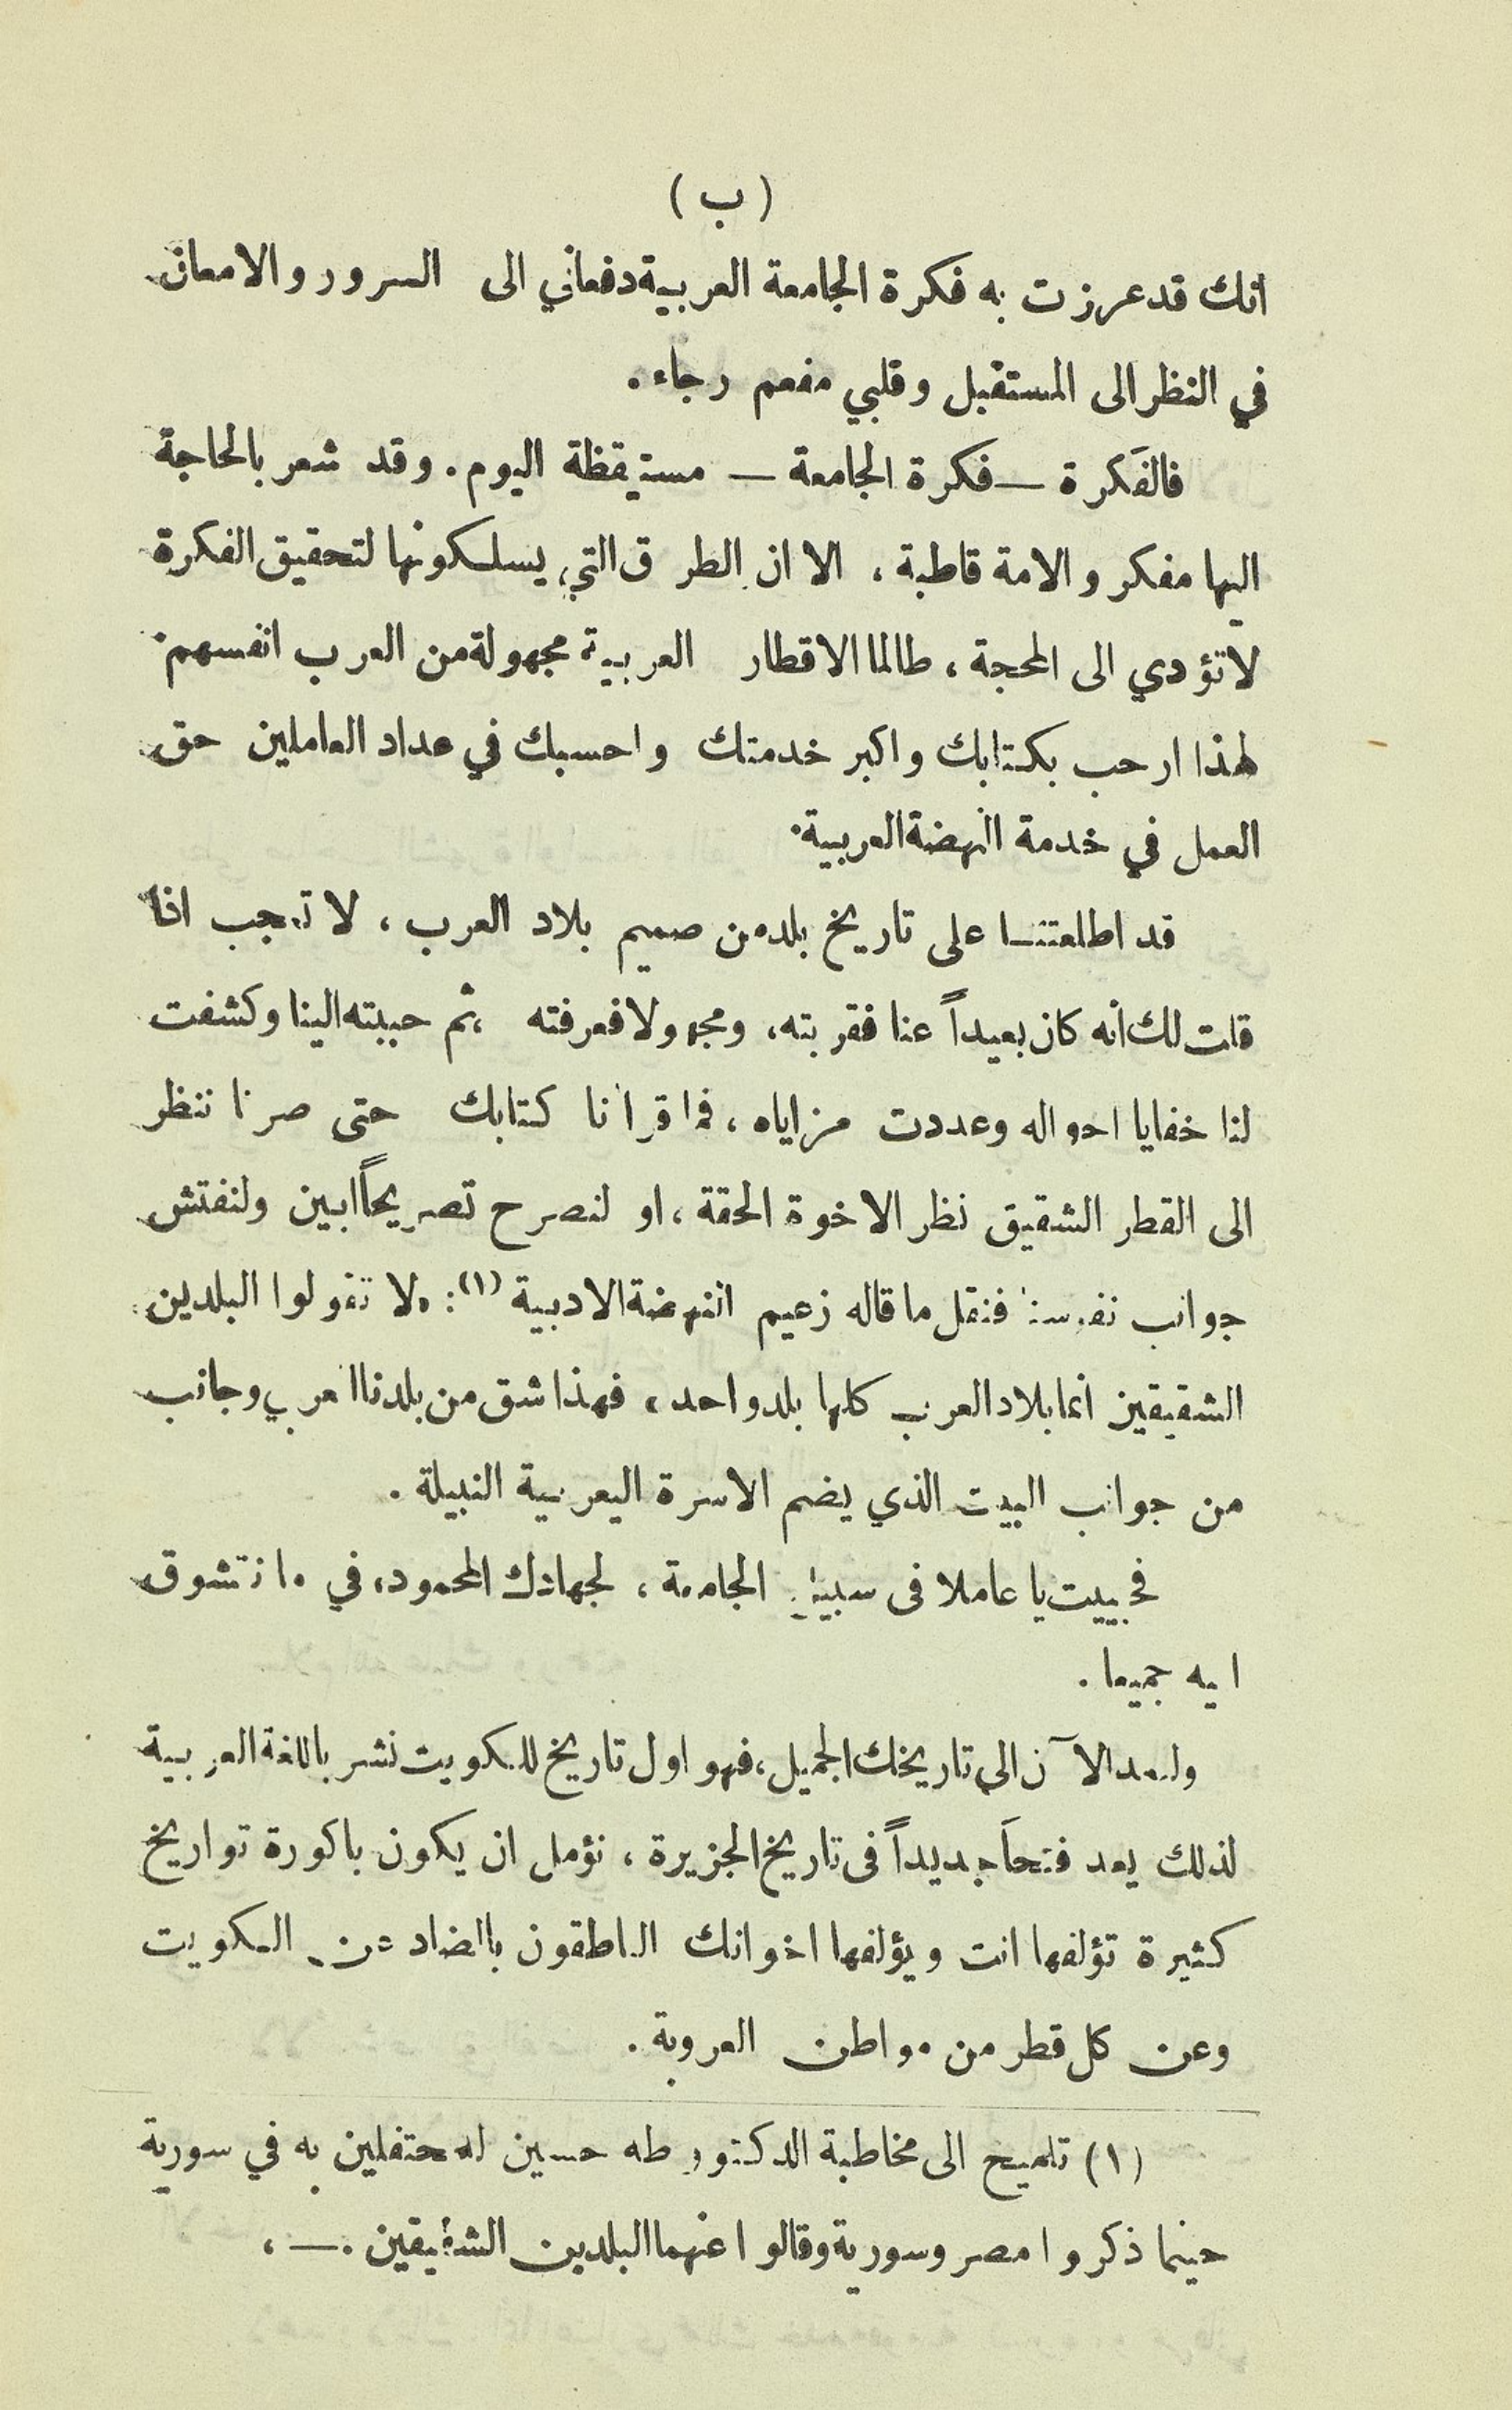 ( ب )
انك قد عززت به فكرة الجامعة العربية دفعاني الى السرور والامعان
في النظر الى المستقبل وقلبي مفعم رجاء .
فالفكرة — فكرة الجامعة — مستيقظة اليوم . وقد شعر بالحاجة
اليها مفكرو الامة قاطبة ، الا ان الطرق التي يسلكونها لتحقيق الفكرة
لا تؤدي الى المحجة ، طالما الاقطار العربية مجهولة من العرب انفسهم .
لهذا ارحب بكتابك واكبر خدمتك واحسبك في عداد العاملين حق
العمل في خدمة النهضة العربية .
قد اطلعتنا على تاريخ بلد من صميم بلاد العرب ، لا تعجب اذا
قلت لك انه كان بعيداً عنا فقربته ، ومجهولا فعرفته ، ثم حببته الينا وكشفت
لنا خفايا احواله وعددت مزاياه ، فما قرأنا كتابك حتى صرنا ننظر
الى القطر الشقيق نظر الاخوة الحقة ، او لنصرح تصريحاً ابين ولنفتش
جوانب نفوسنا فننقل ما قاله زعيم النهضة الادبية (١) : « لا تقولوا البلدين
الشقيقين انما بلاد العرب كلها بلد واحد ، فهذا شق من بلدنا العربي وجانب
من جوانب البيت الذي يضم الاسرة اليعربية النبيلة .
فحييت يا عاملا في سبيل الجامعة ، لجهادك المحمود ، في ما نتشوق
اليه جميعا .
ولنعد الآن الى تاريخك الجميل ، فهو اول تاريخ للكويت نشر باللغة العربية
لذلك يعد فتحاً جديداً في تاريخ الجزيرة ، نؤمل ان يكون باكورة تواريخ
كثيرة تؤلفها انت ويؤلفها اخوانك الناطقون بالضاد عن الكويت
وعن كل قطر من مواطن العروبة .
(١) تلميح الى مخاطبة الدكتور طه حسين للمحتفلين به في سورية
حينما ذكروا مصر وسورية وقالوا عنهما البلدين الشقيقين . — ،